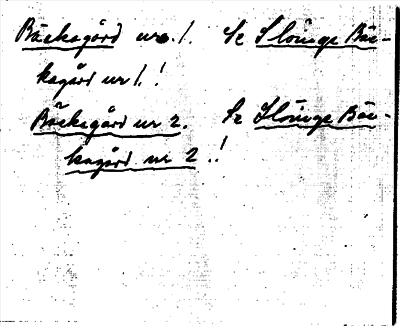 Bäckagård nr. 1. Se Slöinge Bäc-
kagård nr 1.!
Bäckagård nr 2. Se Slöinge Bäc-
kagård nr 2.!